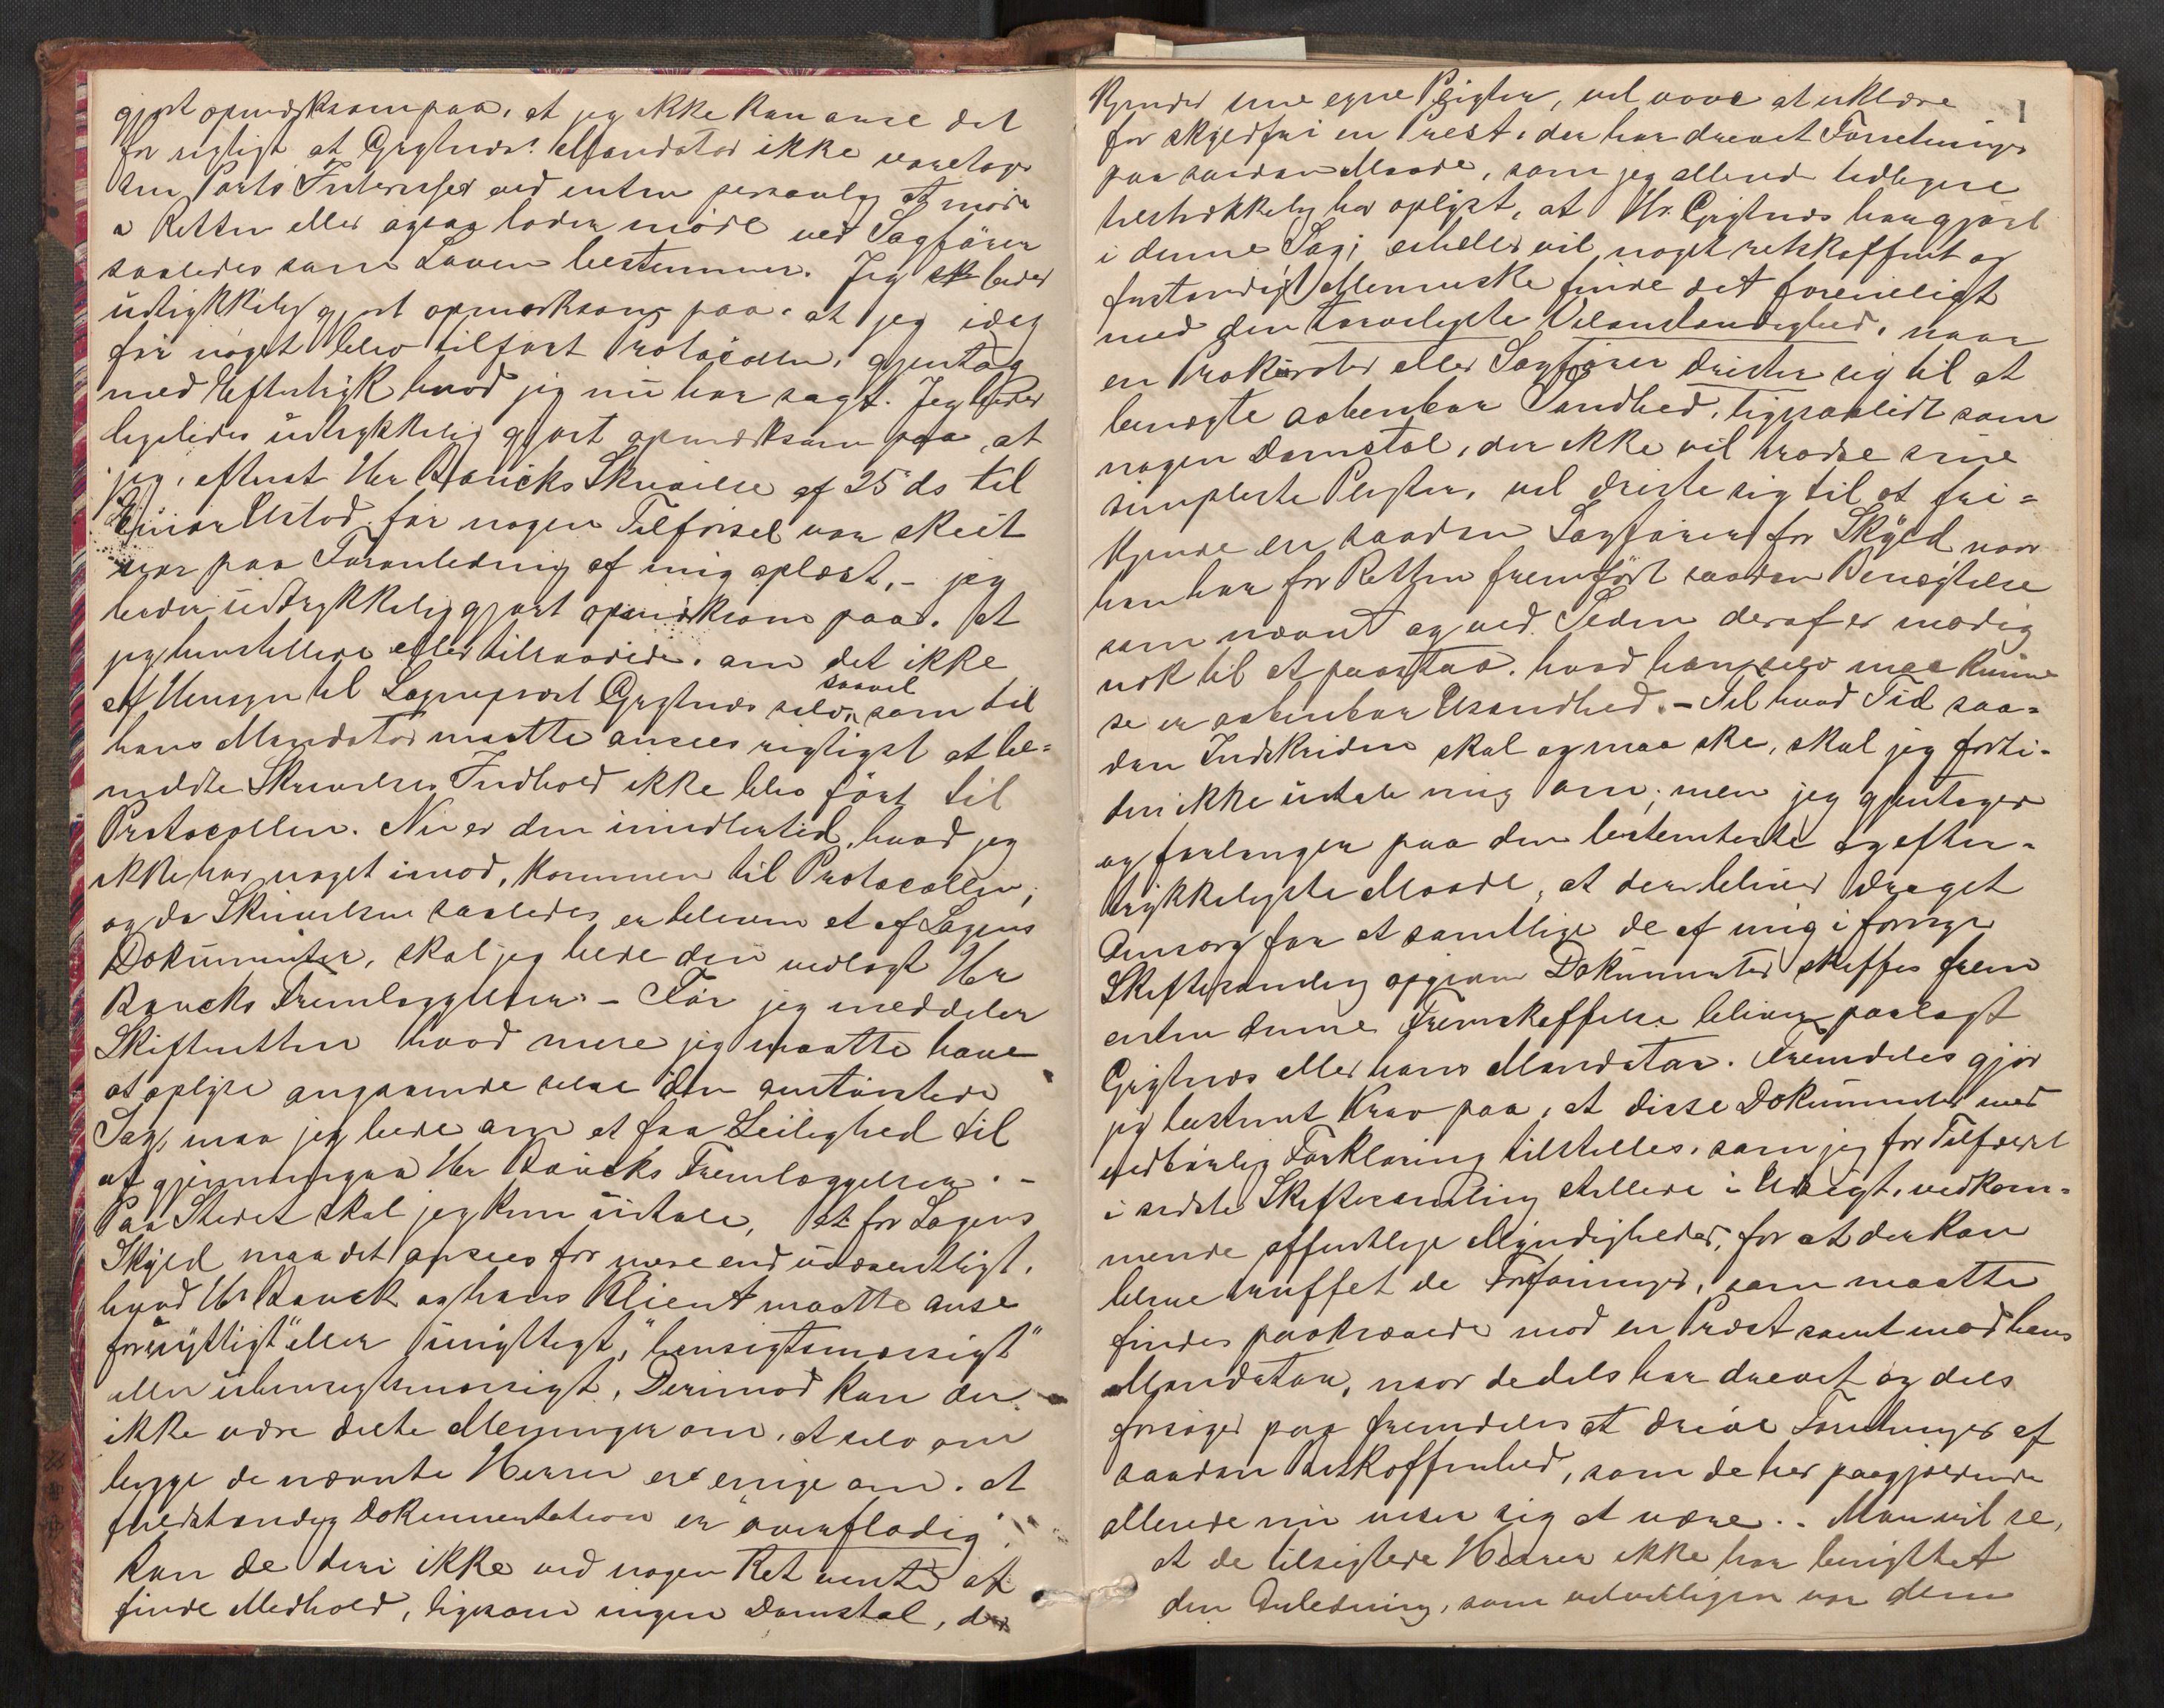 gjort opmærksom paa, at jeg ikke kan anse det
for rigtigt at Grytnæs' Mandatar ikke varetager
sin Parts Interesser ved enten personlig at møde
i Retten eller ogsaa lader møde ved Sagfører
saaledes som Loven bestemmer. Jeg beder
udtrykkelig gjort opmærksom paa, at jeg idag
før noget blev tilført Protocollen, gjentog
med Eftertryk hvad jeg nu har sagt. Jeg beder
ligeledes udtrykkelig gjort opmærksom paa at
jeg, efterat Hr Baucks Skrivelse af 25 ds til
Einar Ustad før nogen Tilførsel var skeet
var paa Foranledning af mig oplæst, - jeg
beder udtrykkelig gjort opmærksom paa, at
jeg henstillede eller tilraadede, om det ikke
af Hensyn til Sogneprest Grytnæs selv saavel som til
hans Mandatar maatte ansees rigtigst at be=
meldte Skrivelses Indhold ikke blev ført til
Protocollen. Nu er den imidlertid, hvad jeg
ikke har noget imod, kommen til Protocollen,
og da Skrivelsen saaledes er bleven et af Sagens
Dokumenter, skal jeg bede den vedlagt Hr
Baucks Fremlæggelser. - Før jeg meddeler
Skifteretten hvad mere jeg maatte have
at oplyse angaaende selve den
Sag, maa jeg bede om at faa Leilighed til
at gjennemgaa Hr Baucks Fremlæggelser. -
Paa Stedet skal jeg kun udtale, at for Sagens
Skyld maa det ansees for mere end uvæsentligt,
hvad Hr Bauck og hans Klient maatte anse
for "nyttigt" eller unyttigt, "hensigtsmæssigt"
eller uhensigtsmæssigt. Derimod kan der
ikke være delte Meninger om, at selv om
begge de nævnte Herrer ere enige om, at
fuldstændig Dokumentation er "overflødig",
kan de deri ikke ved nogen Ret vente at
finde Medhold, ligesom ingen Domstol, der
1
kjender sine egne Pligter, vil vove at erklære
for skyldfri en Prest, der har drevet Forretninger
paa saadan Maade, som jeg allerede tidligere
tilstrækkelig har oplyst, at Hr. Grytnæs har gjort
i denne Sag; eiheller vil noget retskaffent og
forstandigt Menneske finde det foreneligt
med den tarveligste Velanstændighed, naar
en Prokurator eller Sagfører drister sig til at
benægte aabenbar Sandhed, ligesaalidt som
nogen Domstol, der ikke vil trodse sine
simpleste Pligter, vil driste sig til at fri=
kjende en saadan Sagfører for Skyld naar
han har for Retten fremført saadan Benægtelse
som nævnt og ved Siden deraf er modig
nok til at paastaa, hvad han selv maa kunne
se er aabenbar Usandhed. - Til hvad Tid saa=
dan Indskriden skal og maa ske, skal jeg forti-
den ikke udtale mig om; men jeg gjentager
og forlanger paa den bestemteste og efter-
trykkeligste Maade, at der bliver draget
Omsorg for at samtlige de af mig i forrige
Skiftesamling opgivne Dokumenter skaffes frem
enten denne Fremskaffelse bliver paalagt
Grytnæs eller hans Mandatar. Fremdeles gjør
jeg bestemt Krav paa, at disse Dokumenter med
vedbørlig Forklaring tilstilles, som jeg for Tilfældet
i sidste Skiftesamling stillede i Udsigt, vedkom-
mende offentlige Myndigheder, for at der kan
blive truffet de Forføininger, som maatte
findes paakrævede mod en Præst samt mod hans
Mandatar, naar de dels har drevet og dels
forsøger paa fremdeles at drive Forretninger af
saadan Beskaffenhed, som de her paagjældende
allerede nu viser sig at være. . Man vil se,
at de tilsigtede Herrer ikke har benyttet
den Anledning, som udentligen var dem